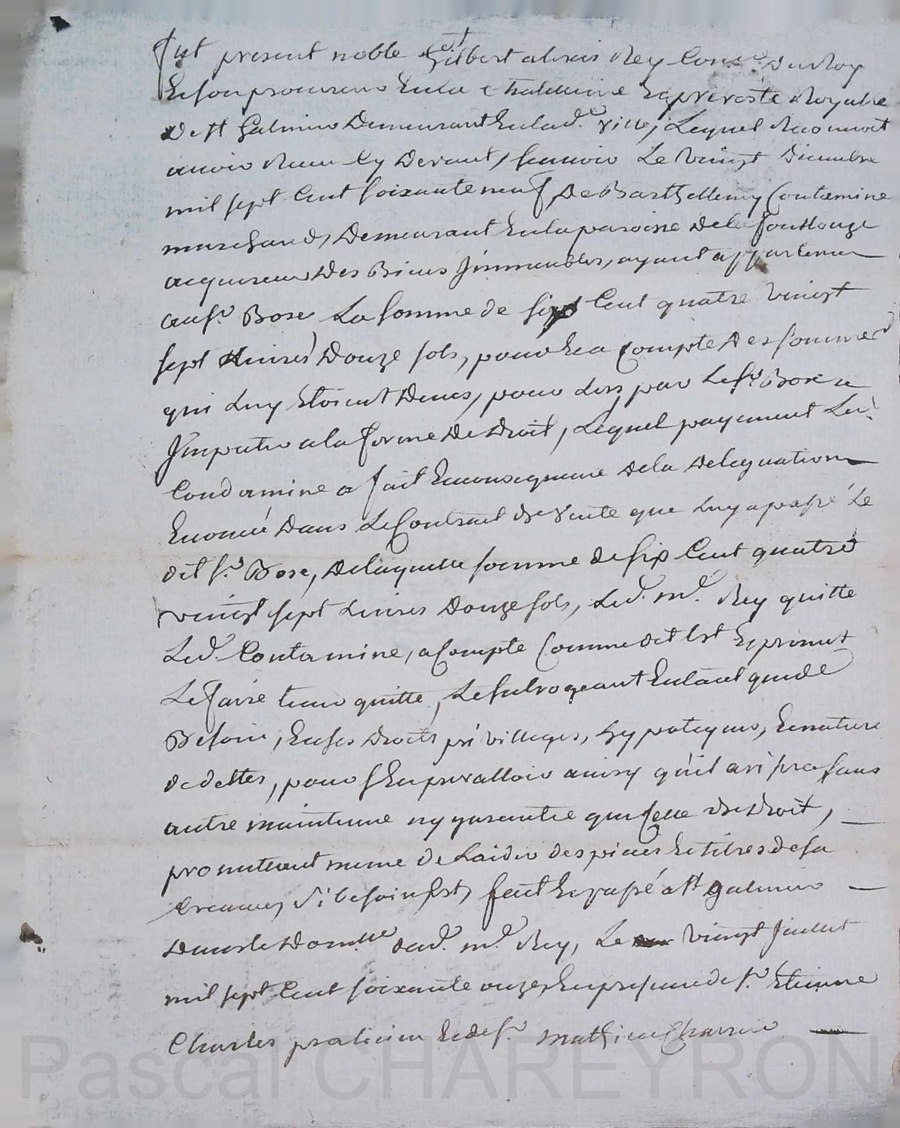 fut present noble Gilbert alexis Rey Cons.er Du Roy
Et son procureur En la Chatelainie Et prevosté Royalle
de st Galmier Demeurant En lad.e ville, Lequel Reconnoit
avoir Receu Cy Devant, scavoir Le vingt Decembre
mil sept Cent soixante neuf De Barthellemy Contamine
marchand, Demeurant En la paroisse de la fouillouze
acquereur Des Biens Jmmeubles, ayant appartenu
au s.r Bose La somme de six Cent quatre vingt
sept Livres Douze sols, pour Et a Compte Des sommes
qui Luy Etoient Deues, pour Lors par Le s.r Bose a
Jmputer a la forme De Droit, Lequel payement Led.
Condamine a fait En consequence de la Delegation
Enoncée Dans Le Contract de vente que Luy a passé Le
dit s.r Bose, De laquelle somme de six Cent quatre
vingt sept Livres Douze sols, Led. m.e Rey quitte
Led. Contamine, a Compte Comme dit Est Et promet
Le faire tenir quitte, Le subrogeant En tant que de
Besoin, En ses Droits privilleges, hypoteques, Et nature
de dettes, pour s'En prevalloir ainsy qu'il avisera sans
autre maintenue ny garantie que Celle De Droit,
promettant meme de L'aider des pieces Et titres de sa
Creance, si besoin Est, fait Et passé a st galmier
Dans le Domlle dud. m.e Rey, Le vingt Juillet
mil sept Cent soixante onze, En presence de s.r Etienne
Charles praticien Et de s.r mathieu Charrin
Pascal CHAREYRON